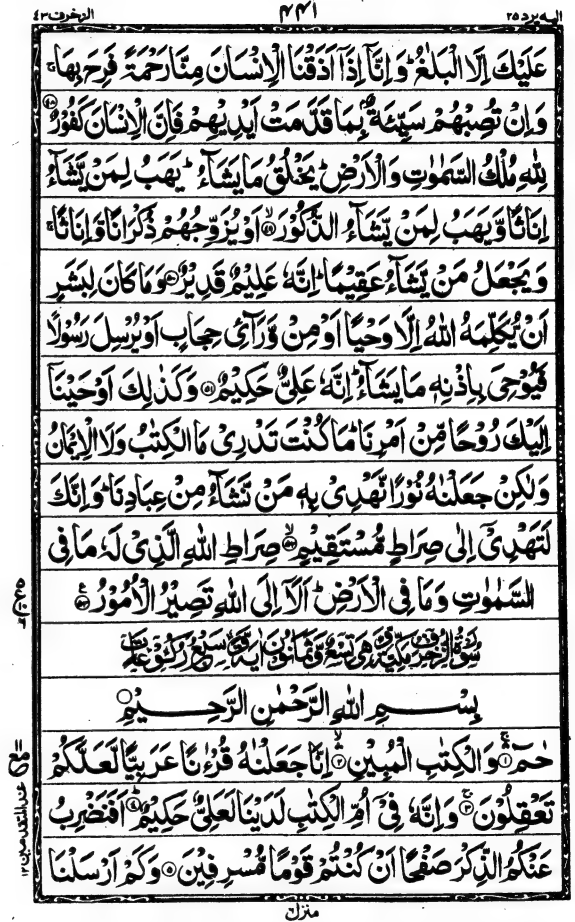 الزخرف ٤٣ ٤٤١ اليه يرد ٢٥
عَلَيْكَ اِلَّا الْبَلٰغُ ؕ وَاِنَّاۤ اِذَاۤ اَذَقْنَا الْاِنْسَانَ مِنَّا رَحْمَةً فَرِحَ بِهَا ۚ
وَاِنْ تُصِبْهُمْ سَيِّئَةٌۢ بِمَا قَدَّمَتْ اَيْدِيْهِمْ فَاِنَّ الْاِنْسَانَ كَفُوْرٌ ﴿۴۸﴾
لِلّٰهِ مُلْكُ السَّمٰوٰتِ وَالْاَرْضِ ؕ يَخْلُقُ مَا يَشَآءُ ؕ يَهَبُ لِمَنْ يَّشَآءُ
اِنَاثًا وَّيَهَبُ لِمَنْ يَّشَآءُ الذُّكُوْرَ ۙ﴿۴۹﴾ اَوْ يُزَوِّجُهُمْ ذُكْرَانًا وَّاِنَاثًا ۚ
وَيَجْعَلُ مَنْ يَّشَآءُ عَقِيْمًا ؕ اِنَّهٗ عَلِيْمٌ قَدِيْرٌ ﴿۵۰﴾ وَمَا كَانَ لِبَشَرٍ
اَنْ يُّكَلِّمَهُ اللّٰهُ اِلَّا وَحْيًا اَوْ مِنْ وَّرَآئِ حِجَابٍ اَوْ يُرْسِلَ رَسُوْلًا
فَيُوْحِيَ بِاِذْنِهٖ مَا يَشَآءُ ؕ اِنَّهٗ عَلِيٌّ حَكِيْمٌ ﴿۵۱﴾ وَكَذٰلِكَ اَوْحَيْنَاۤ
اِلَيْكَ رُوْحًا مِّنْ اَمْرِنَا ؕ مَا كُنْتَ تَدْرِيْ مَا الْكِتٰبُ وَلَا الْاِيْمَانُ
وَلٰكِنْ جَعَلْنٰهُ نُوْرًا نَّهْدِيْ بِهٖ مَنْ نَّشَآءُ مِنْ عِبَادِنَا ؕ وَاِنَّكَ
لَتَهْدِيْۤ اِلٰى صِرَاطٍ مُّسْتَقِيْمٍ ۙ﴿۵۲﴾ صِرَاطِ اللّٰهِ الَّذِيْ لَهٗ مَا فِي
السَّمٰوٰتِ وَمَا فِي الْاَرْضِ ؕ اَلَاۤ اِلَى اللّٰهِ تَصِيْرُ الْاُمُوْرُ ﴿۵۳﴾
سُوْرَةُ الزُّخْرُفِ مَكِّيَّةٌ وَّهِيَ تِسْعٌ وَّثَمَانُوْنَ اٰيَةً وَّسَبْعُ رُكُوْعَاتٍ
بِسْمِ اللّٰهِ الرَّحْمٰنِ الرَّحِيْمِ
حٰمٓ ﴿۱﴾ وَالْكِتٰبِ الْمُبِيْنِ ۙ﴿۲﴾ اِنَّا جَعَلْنٰهُ قُرْءٰنًا عَرَبِيًّا لَّعَلَّكُمْ
تَعْقِلُوْنَ ۚ﴿۳﴾ وَاِنَّهٗ فِيْۤ اُمِّ الْكِتٰبِ لَدَيْنَا لَعَلِيٌّ حَكِيْمٌ ؕ﴿۴﴾ اَفَنَضْرِبُ
عَنْكُمُ الذِّكْرَ صَفْحًا اَنْ كُنْتُمْ قَوْمًا مُّسْرِفِيْنَ ﴿۵﴾ وَكَمْ اَرْسَلْنَا
منزل